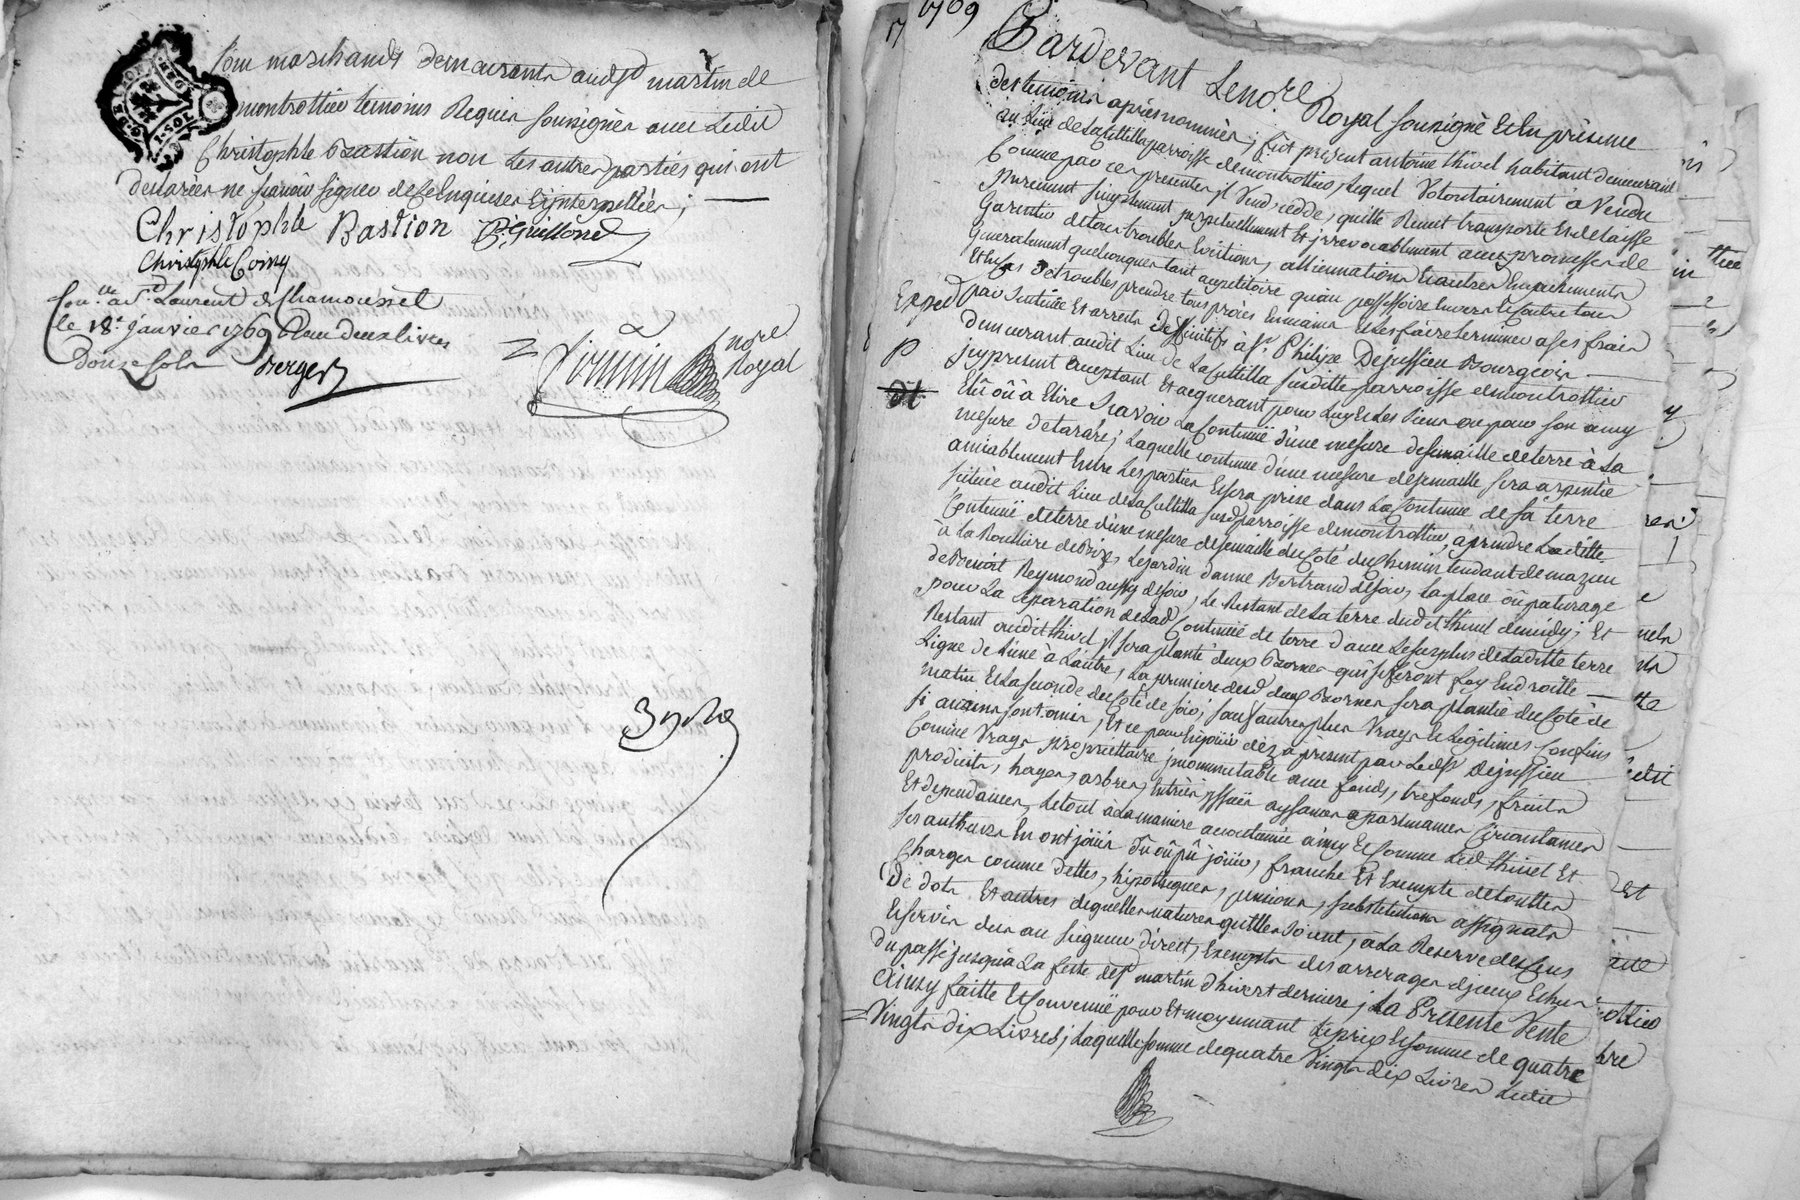 marchands demeurants aud st martin de
montrottier temoins Requis soussignés avec Ledit
Christophle Bastion non Les autres parties qui ont
declarées ne sçavoir signer de Ce Enquises & interpellées ;
Christophle Bastion P. Guillond
Christophle Coiny
Con.lle a St Laurent de Chamousset
le 18e janvier 1769 Reçu deux livres
Douze sols Berger
nore
Royal
1769
Pardevant Le nore Royal soussigné & En présence
des temoins après nommés, fut présent antoine thivel habitant demeurant
au Lieu de La Cottilla parroisse de montrottier, Lequel Volontairement à Vendu
Comme par ces presentes il Vend, cedde, quitte Remet transporte Et delaisse
purement simplement perpetuellement Et jrrevocablement avec promesse de
Garentir de tous troubles Evictions, alliennations & autres Empechements
Generalement quelconques tant au petitoire qu'au possessoire Envers & Contre tous
Et les troubles prendre tous procès En mains & Les faire terminer a ses frais
par Sentence Et arrests deffinitifs à Sr Philipe Dejussieu Bourgeois
Exped
demeurant audit Lieu de La Cottilla susditte parroisse de montrottier
P
jcy present acceptant Et acquerant pour Luy & Les siens ou pour son amy
Elû où à Elire Sçavoir La Contenüe d'une mesure de semaille de terre à La
mesure de tarare ; Laquelle contenue d'une mesure de semaille sera arpentée
amiablement Entre Les parties & sera prise dans La Contenue de sa terre
scituée audit Lieu de La Cottilla susd parroisse de montrottier, a prendre Laditte
Contenüe de terre d'une mesure de semaille du Coté du Chemin tendant de mazieu
à La Roulliere de Bize, Le jardin d'anne Bertrand de soir, La place où paturage
de Benoit Reymond aussy de soir, Le Restant de La terre dudit thivel de midy ; Et
pour La separation de Lad Contenüe de terre d'avec Le surplus de Laditte terre
Restant audit thivel jl sera planté deux Bornes qui se feront foy En droitte
Ligne de L'une à L'autre, La premiere desd deux Bornes sera plantée du Coté de
matin & La seconde du Coté de soir ; sauf autres plus Vrays & Legitimes Confins
si aucuns sont omis, Et ce pour En joüir dèz à present par Ledt Sr Dejussieu
Comme Vray propriettaire jncommutable avec fonds, trefonds, fruits
produits, hayes, arbres, Entrées jssües aysances apartenances Circonstances
Et dependances, Le tout a La maniere accoutumée ainsy & Comme Led thivel Et
ses autheurs En ont joüis dû où pû joüir, franche Et Exempte de touttes
Charges comme dettes, hipotheques, pensions, substitutions assignats
De dots Et autres de quelles natures qu'elles soient, à La Reserve des Cens
& servis deus au seigneur direct, Exempts des arrerages d'jceux Echus
Du passé jusqu'à La feste de St martin d'hiver derniere ; La Presente Vente
Ainsy faitte Et Convenüe pour Et moyennant Le prix & somme de quatre
Vingts dix Livres ; Laquelle somme de quatre Vingts dix Livres Ledit